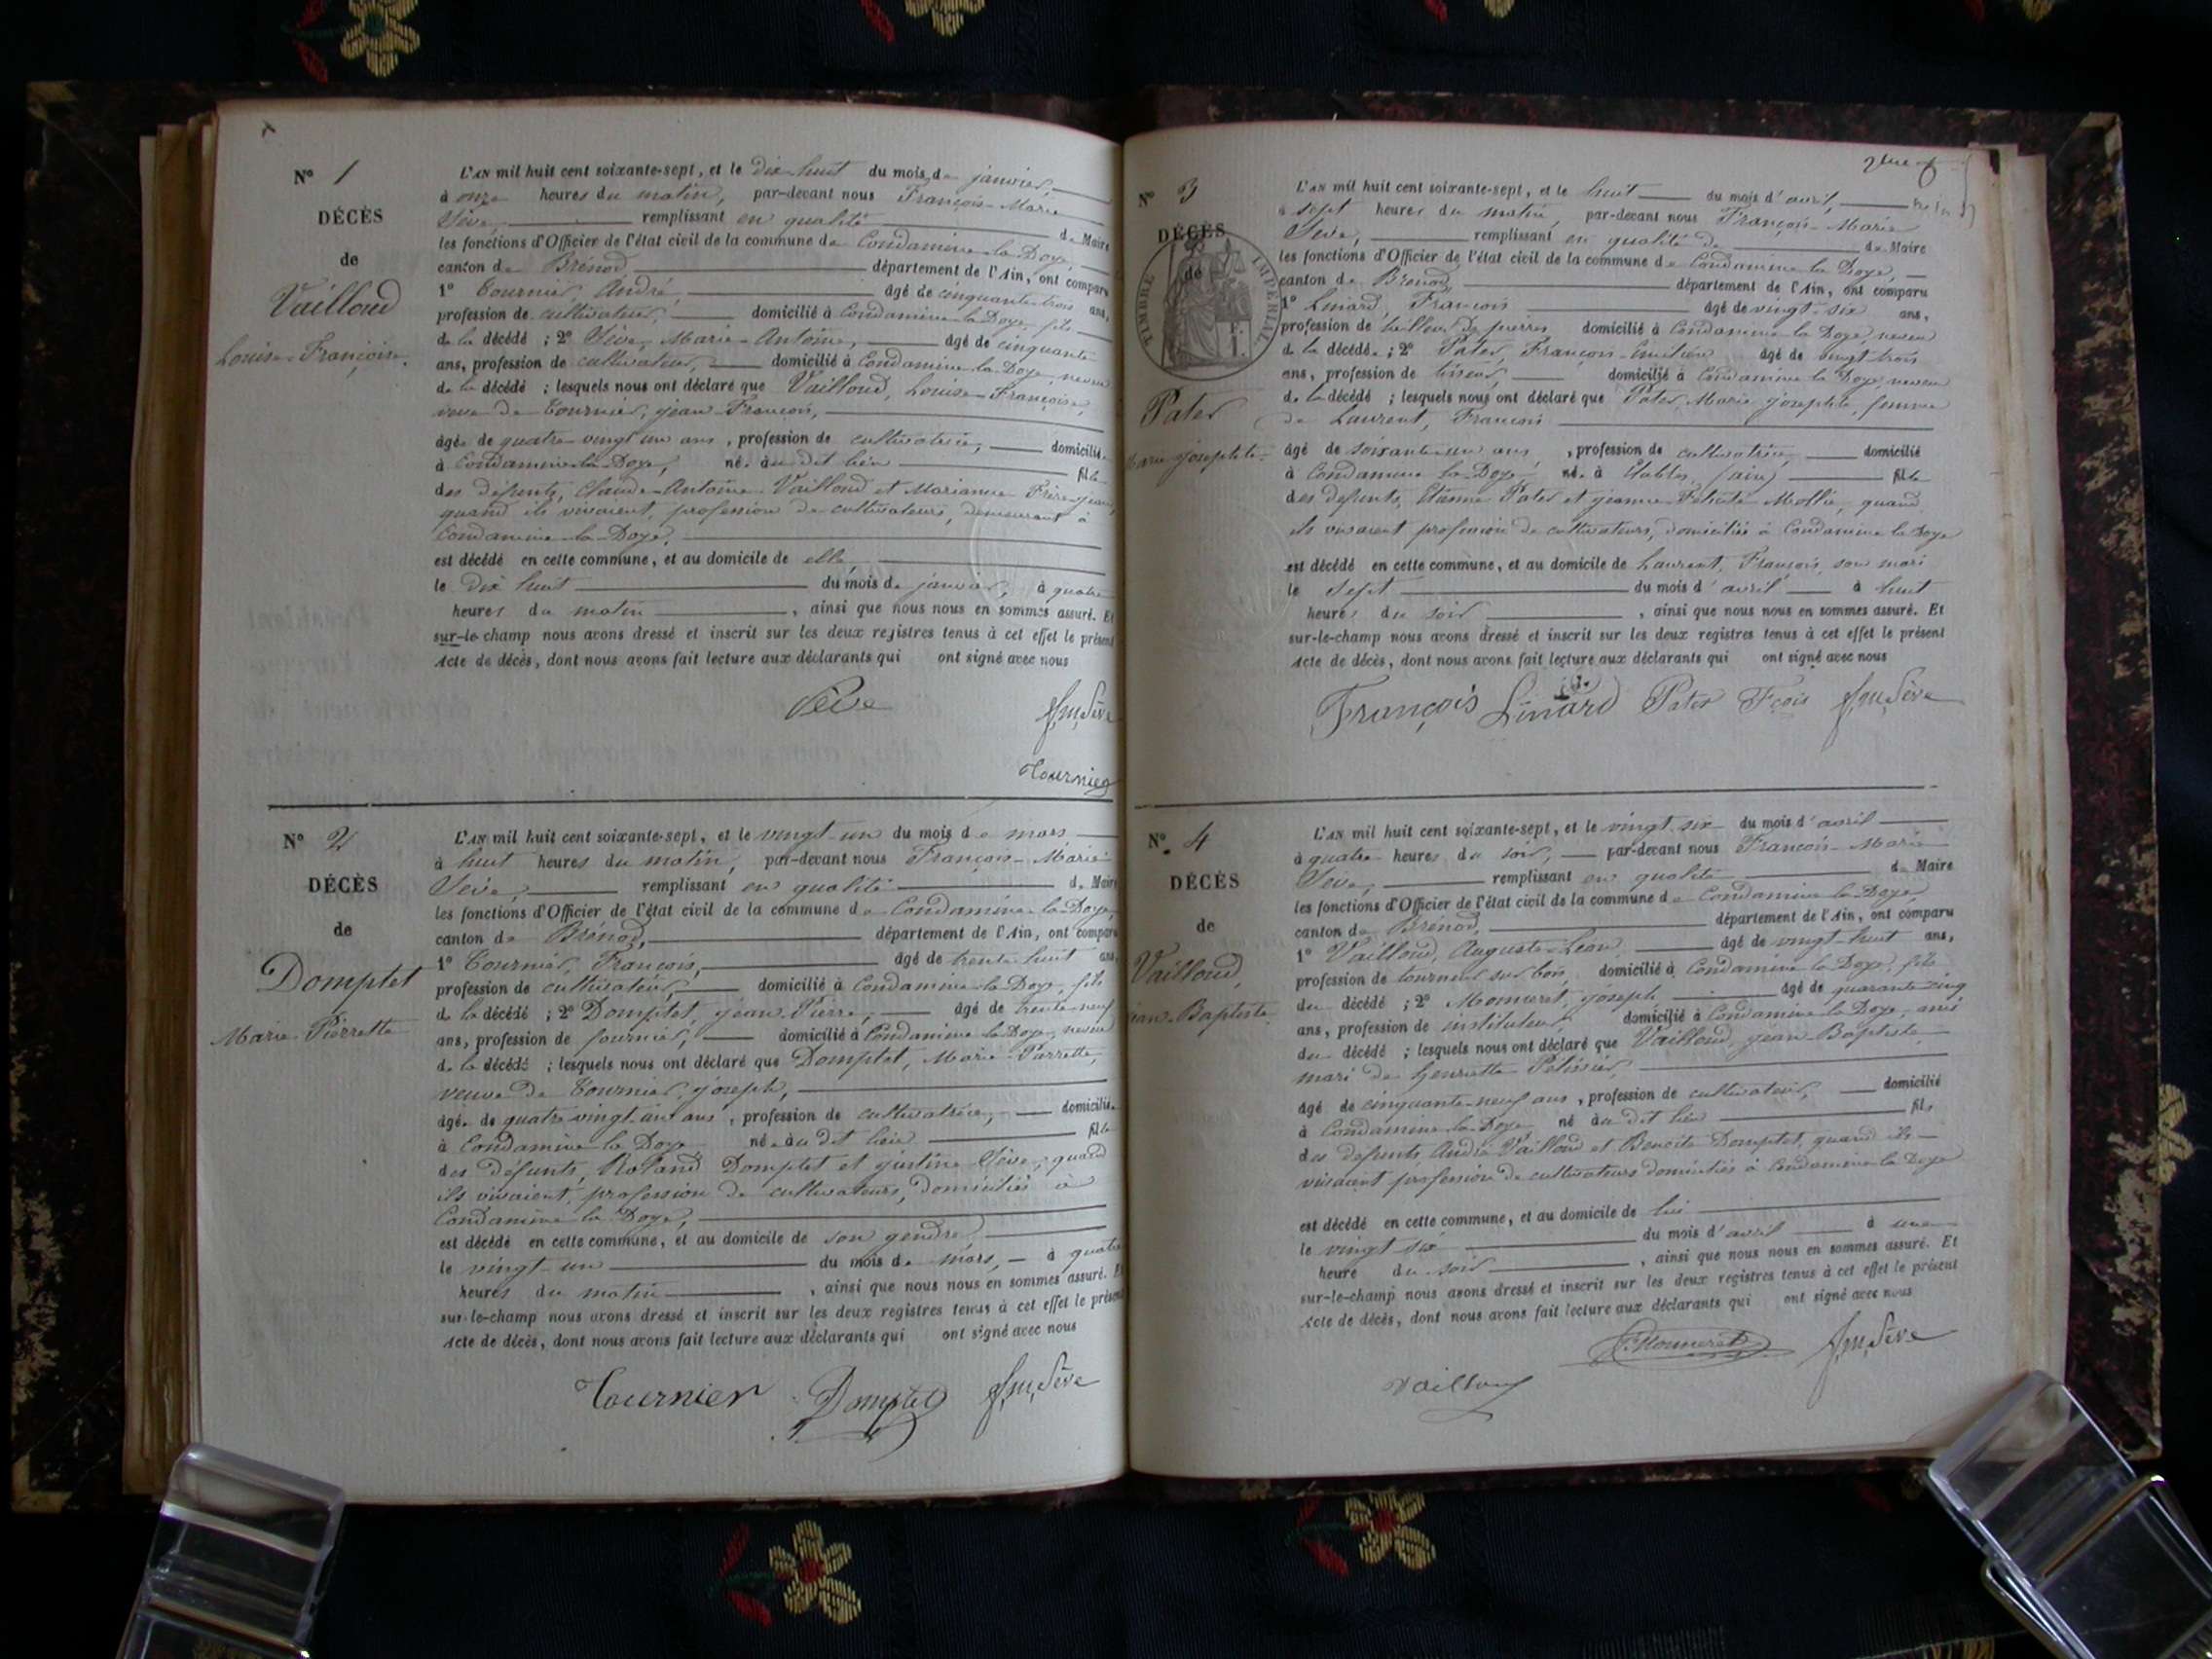 N° 1
DÉCÈS
de
Vailloud
Louise-Françoise.
L'AN mil huit cent soixante-sept, et le dix-huit du mois de janvier,
à onze heures du matin, par-devant nous François-Marie
Sève, remplissant en qualité de Maire
les fonctions d'Officier de l'état civil de la commune de Condamine-la-Doye,
canton de Brénod département de l'Ain, ont comparu
1° Tournier, André, âgé de cinquante-trois ans,
profession de cultivateur, domicilié à Condamine-la-Doye, fils
de la décédé ; 2° Sève, Marie-Antoine, âgé de cinquante
ans, profession de cultivateur, domicilié à Condamine-la-Doye, neveu
de la décédé ; lesquels nous ont déclaré que Vailloud, Louise-Françoise,
veuve de Tournier, jean François,
âgée de quatre-vingt un ans, profession de cultivatrice, domiciliée
à Condamine-la-Doye, née au dit lieu fille
des défunts, Claude-Antoine Vailloud et Marianne Frère-jean,
quand ils vivaient, profession de cultivateurs, demeurant à
Condamine-la-Doye.
est décédé en cette commune, et au domicile de elle
le dix huit du mois de janvier, à quatre
heures du matin, ainsi que nous nous en sommes assuré. Et
sur-le-champ nous avons dressé et inscrit sur les deux registres tenus à cet effet le présent
Acte de décès, dont nous avons fait lecture aux déclarants qui ont signé avec nous
Sève f.m. Sève
Tournier
N° 2
DÉCÈS
de
Domptet
Marie-Pierrette
L'AN mil huit cent soixante-sept, et le vingt-un du mois de mars
à huit heures du matin, par-devant nous François-Marie
Sève, remplissant en qualité de Maire
les fonctions d'Officier de l'état civil de la commune de Condamine-la-Doye,
canton de Brénod, département de l'Ain, ont comparu
1° Tournier, François, âgé de trente huit ans,
profession de cultivateur, domicilié à Condamine-la-Doye, fils
de la décédé ; 2° Domptet, jean-Pierre, âgé de trente-neuf
ans, profession de fournier, domicilié à Condamine-la-Doye, neveu
de la décédé ; lesquels nous ont déclaré que Domptet, Marie-Pierrette,
veuve de Tournier, joseph,
âgée de quatre vingt un ans, profession de cultivatrice, domiciliée
à Condamine-la-Doye née au dit lieu fille
des défunts, Roland Domptet et justine Sève, quand
ils vivaient, profession de cultivateurs, domiciliés à
Condamine-la-Doye,
est décédé en cette commune, et au domicile de son gendre
le vingt-un du mois de mars, à quatre
heures du matin, ainsi que nous nous en sommes assuré. Et
sur-le-champ nous avons dressé et inscrit sur les deux registres tenus à cet effet le présent
Acte de décès, dont nous avons fait lecture aux déclarants qui ont signé avec nous
Tournier Domptet f.m. Sève
N° 3
DÉCÈS
de
TIMBRE IMPÉRIAL
Pater
Marie-josephte
L'AN mil huit cent soixante-sept, et le huit du mois d'avril,
à sept heures du matin, par-devant nous François-Marie
Sève, remplissant en qualité de de Maire
les fonctions d'Officier de l'état civil de la commune de Condamine-la-Doye,
canton de Brénod, département de l'Ain, ont comparu
1° Linard, François âgé de vingt-six ans,
profession de tailleur de pierres, domicilié à Condamine-la-Doye, neveu
de la décédé ; 2° Pater, François âgé de vingt-trois
ans, profession de domicilié à Condamine-la-Doye, neveu
de la décédé ; lesquels nous ont déclaré que Pater, Marie josephte, femme
de Laurent, François
âgé de soixante-un ans, profession de cultivatrice, domicilié
à Condamine-la-Doye née à Étables, (ain) fille
des défunts, Étienne Pater et jeanne Mollie, quand
ils vivaient profession de cultivateurs, domiciliés à Condamine la Doye
est décédé en cette commune, et au domicile de Laurent, François, son mari
le sept du mois d'avril à huit
heures du soir, ainsi que nous nous en sommes assuré. Et
sur-le-champ nous avons dressé et inscrit sur les deux registres tenus à cet effet le présent
Acte de décès, dont nous avons fait lecture aux déclarants qui ont signé avec nous
François Linard Pater Fçois f.m. Sève
N° 4
DÉCÈS
de
Vailloud,
jean-Baptiste.
L'AN mil huit cent soixante-sept, et le vingt-six du mois d'avril
à quatre heures du soir, par-devant nous François-Marie
Sève, remplissant en qualité de Maire
les fonctions d'Officier de l'état civil de la commune de Condamine-la-Doye,
canton de Brénod, département de l'Ain, ont comparu
1° Vailloud, Auguste-Léon, âgé de vingt-huit ans,
profession de tourneur sur bois, domicilié à Condamine-la-Doye, fils
du décédé ; 2° Momeret, joseph âgé de quarante-cinq
ans, profession de instituteur, domicilié à Condamine-la-Doye, ami
du décédé ; lesquels nous ont déclaré que Vailloud, jean-Baptiste
mari de Henriette Pélissier,
âgé de cinquante-neuf ans, profession de cultivateur, domicilié
à Condamine-la-Doye né au dit lieu fils
des défunts André Vailloud et Benoite Domptet, quand ils
vivaient profession de cultivateurs domiciliés à Condamine-la-Doye
est décédé en cette commune, et au domicile de lui
le vingt six du mois d'avril à une
heure du soir, ainsi que nous nous en sommes assuré. Et
sur-le-champ nous avons dressé et inscrit sur les deux registres tenus à cet effet le présent
Acte de décès, dont nous avons fait lecture aux déclarants qui ont signé avec nous
Momeret f.m. Sève
Vailloud